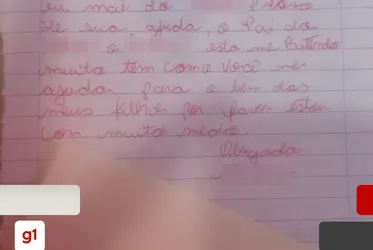 eu mãe do
de sua ajuda, o Pai da
e esta me Batendo
muito tem como Você me
ajudar para o bem dos
meus filhos por favor estou
com muito medo.
Obrigada
g1